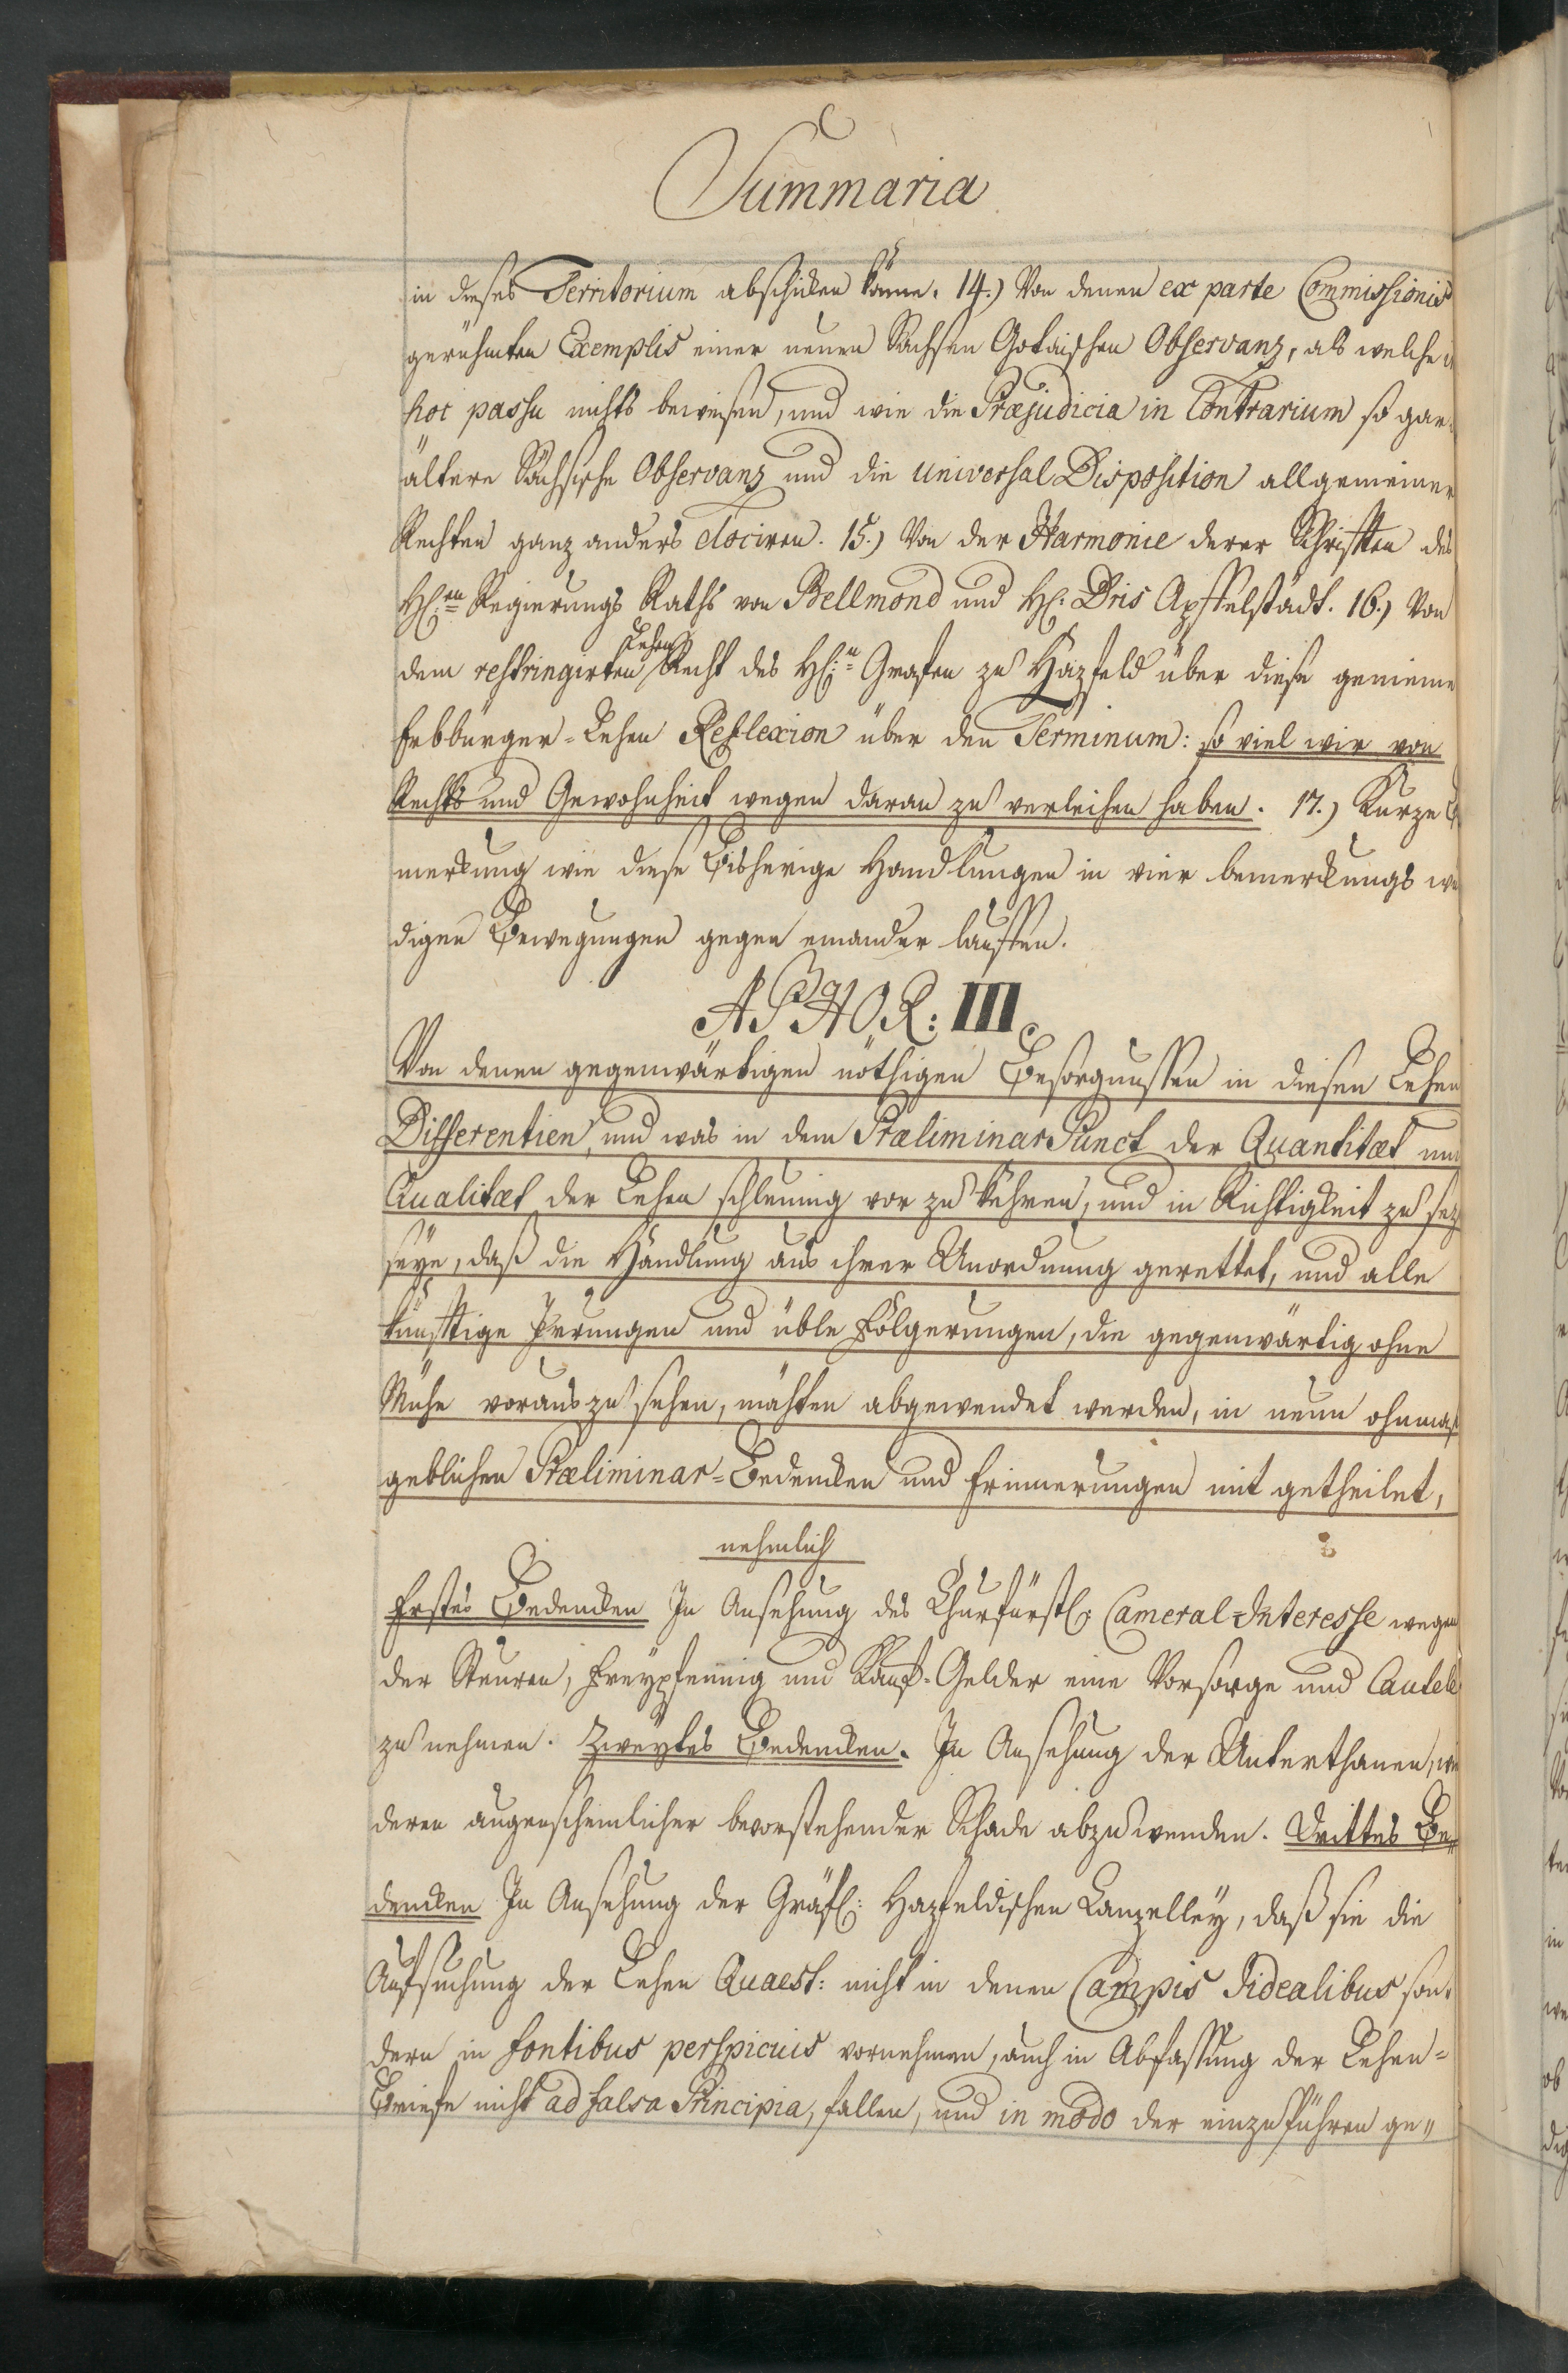 Summaria
in dieses Territorium abschicken könne. 14.) Von denen ex parte Commissionis
gerühmten Exemplis einer neuen Sachsen Gotaischen Observanz, als welche
hoc passu nichts beweisen, und wie die Præjudicia in Contrarium so gar
ältere Sächsische Observanz und die universal Disposition allgemeiner
Rechten ganz anders dociren. 15.) Von der Harmonie derer Schrifften des
H:en Regierungs Raths von Bellmond und H: Dris Apffelstädt. 16.) Von
Lehen
dem restringirten Recht des H:n Grafen zu Hazfeld über diese gemeine
Erbbürger-Lehen Reflexion über den Terminum: so viel wir von
Rechts und Gewohnheit wegen daran zu verleihen haben. 17.) Kurze
merckung wie diese bisherige Handlungen in vier bemerckungs
digen Bewegungen gegen einander lauffen.
APHOR: III.
Von denen gegenwärtigen nöthigen Besorgnussen in diesen Lehen
Differentien, und was in dem Præliminar Punct der Quantitæt und
Qualitæt der Lehen schleunig vor zu kehren, und in Richtigkeit zu sez
seye, daß die Handlung aus ihrer Unordnung gerettet, und alle
künfftige Irrungen und üble Folgerungen, die gegenwärtig ohne
Mühe voraus zu sehen, möchten abgewendet werden, in neun ohnmaß
geblichen Præliminar-Bedencken und Erinnerungen mit getheilet,
nehmlich
Erstes Bedencken In Ansehung des Churfürstl: Cameral-Interesse wegen
der Steuren, Freypfennig und Kauf-Gelder eine Vorsorge und Cautel
zu nehmen. Zweytes Bedencken. In Ansehung der Unterthanen, wie
deren augenscheinlicher bevorstehender Schade abzuwenden. Drittes Be„
dencken In Ansehung der Gräfl: Hazfeldischen Canzelley, daß sie die
Aufsuchung der Lehen Quaest: nicht in denen Campis Jidealibus son„
dern in fontibus perspicuis vornehmen, auch in Abfassung der Lehen=
Briefe nicht ad falsa Principia, fallen, und in modo der einzuführen ge„